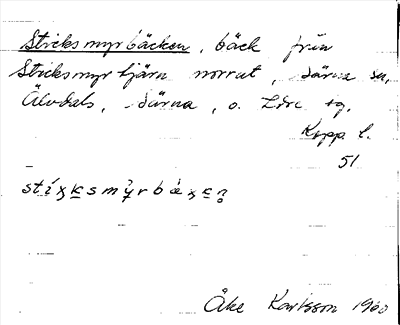 Stricksmyrbäcken, bäck från
Stricksmyrtjärn norrut, Särna sn,
Älvdals, Särna, o. Idre tg.
Kopp. l.
51
Åke Karlsson 1960